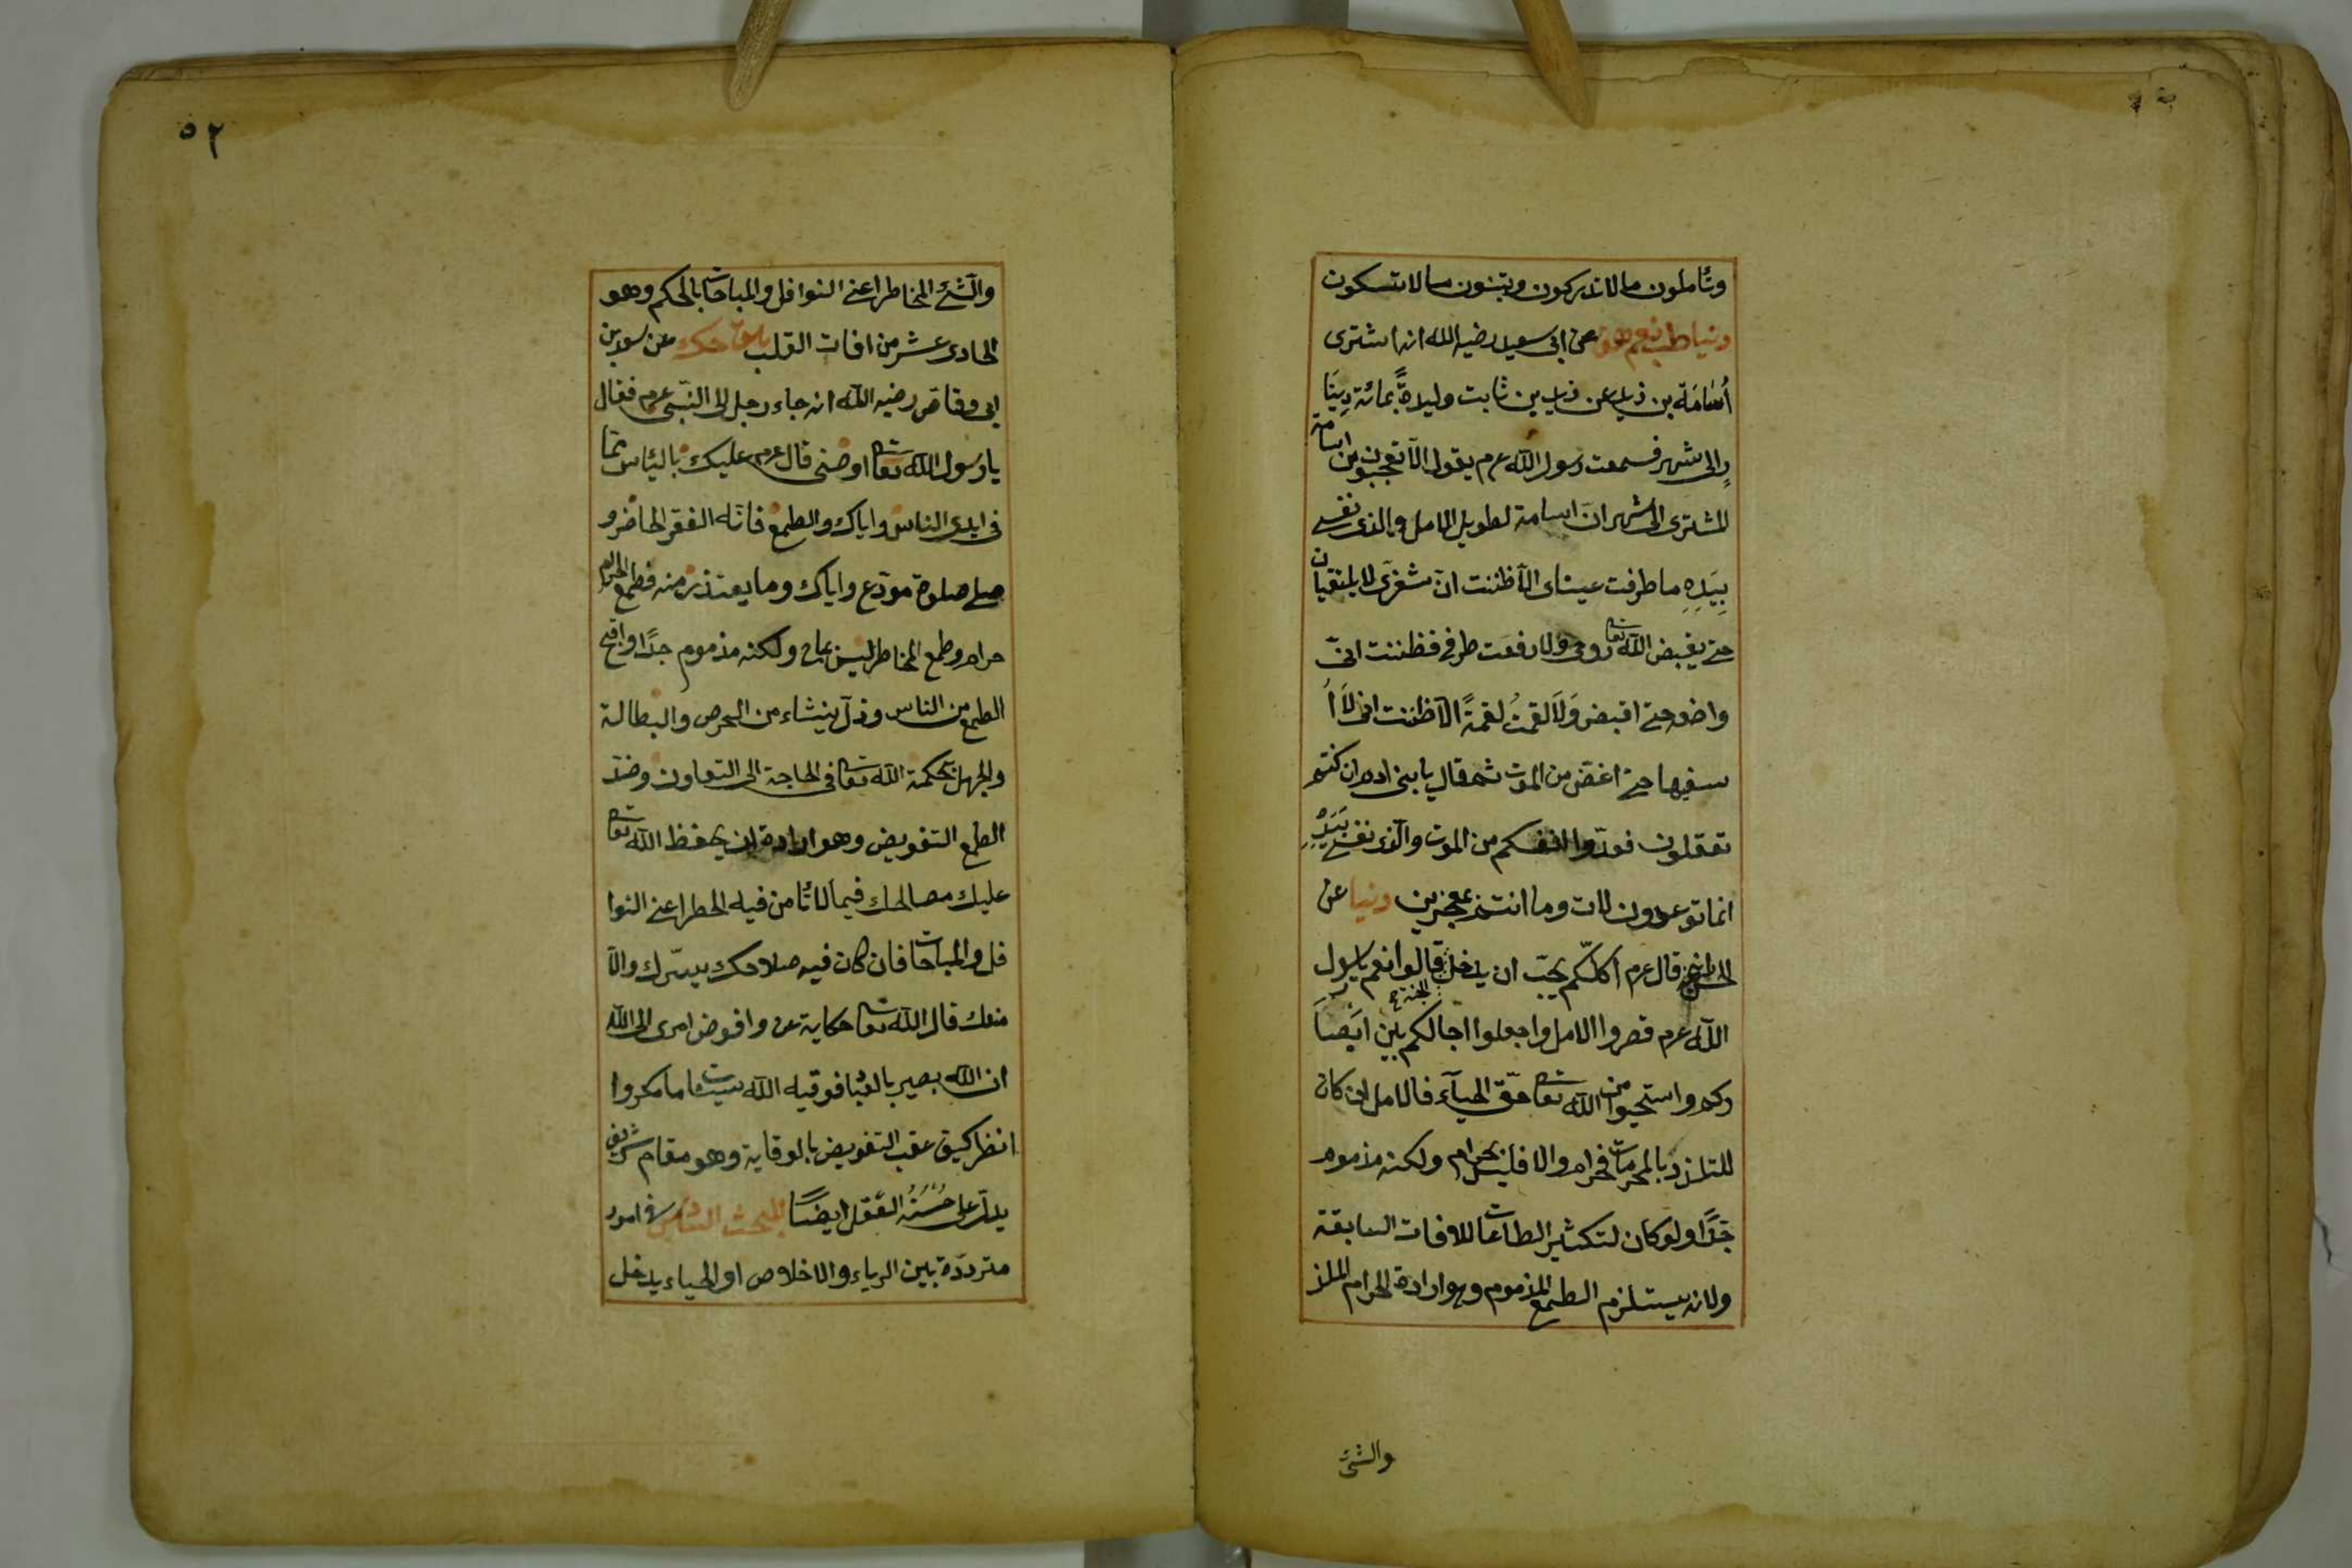 وتأملون مالا تدركون وتبنون مالا تسكون
دنيا طب نعم هق عن ابى سعيد رضيه الله انه اشترى
أُسَامَة بن زيد عن زيد بن ثابت وليدةً بمائة دِينَا
رٍ الى شهر فسمعت رسول الله عرم يقول الآ تعجبون من اسامة
المشترى الى شهر ان اسامة لطويل الامل والذى نفسى
بِيَدِهِ ما طرفت عيناى الآ ظننت انّ شفرَى لا يلتقيان
حتى يقبض الله تعا روحى ولا رفعت طرفى فظننت انى
واضعه حتى اقبض وَلَا لقمتُ لقمةً الآ ظننت انى لَا أُ
سفيها حتى اغض من الموت ثم قال يا بنى ادم ان كنتم
تعقلون فعدّوا انفسكم من الموت والذى نفسى بِيَدِهِ
انما توعدون لات وما انتم بمعجزين دنيا عن
الحسن انه قال عرم أكلّكم يحبّ ان يدخل الجنة قالوا نعم يا رسول
الله عرم قصروا الامل واجعلوا اجالكم بين ابَصَا
ركم واستحيوا من الله تعا حقّ الحيآء فالامل ان كان
للتلذذ بالمحرمات فحرام والا فليس بحرام ولكنه مذموم
جدًا ولو كان لتكثير الطاعات للافات السابقة
ولانه يستلزم الطمع المذموم وهو ارادة الحرام الملذ
والشئ
٥٢
والشئ المخاطر اعنى النوافل والمباحات بالحكم وهو
الحادى عشر من افات القلب حك عن سعد بن
ابى وقاص رضيه الله انه جاء رجل الى النبى عرم فقال
يا رسول الله تعا اوصنى قال عرم عليك باليأس عما
فى ايدى الناس واياك والطمع فانّه الفقر الحاضر و
صلى صلوة مودّع واياك وما يعتذر منه فطمع الحرام
حرام وطمع المخاطر ليس بحرام ولكنه مذموم جدًا واقبح
الطمع من الناس وذل ينشاء من الحرص والبطالة
والجهل بحكمة الله تعا فى الحاجة الى التعاون وضد
الطمع التفويض وهو ارادة ان يحفظ الله تعا
عليك مصالحك فيما لا تأمن فيه الخطر اعنى النوا
فل والمباحات فان كان فيه صلاحك يسّرك والآ
منعك قال الله تعا حكاية عن وافوض امرى الى الله
ان الله بصير بالعباد فوقيه الله سيئات ما مكروا
انظر كيف عقب التفويض بالوقاية وهو مقام شريف
يدل على حُسْنَهُ العَقل ايضًا المبحث السادس فى امور
مترددّة بين الرياء والاخلاص او الحياء يدخل